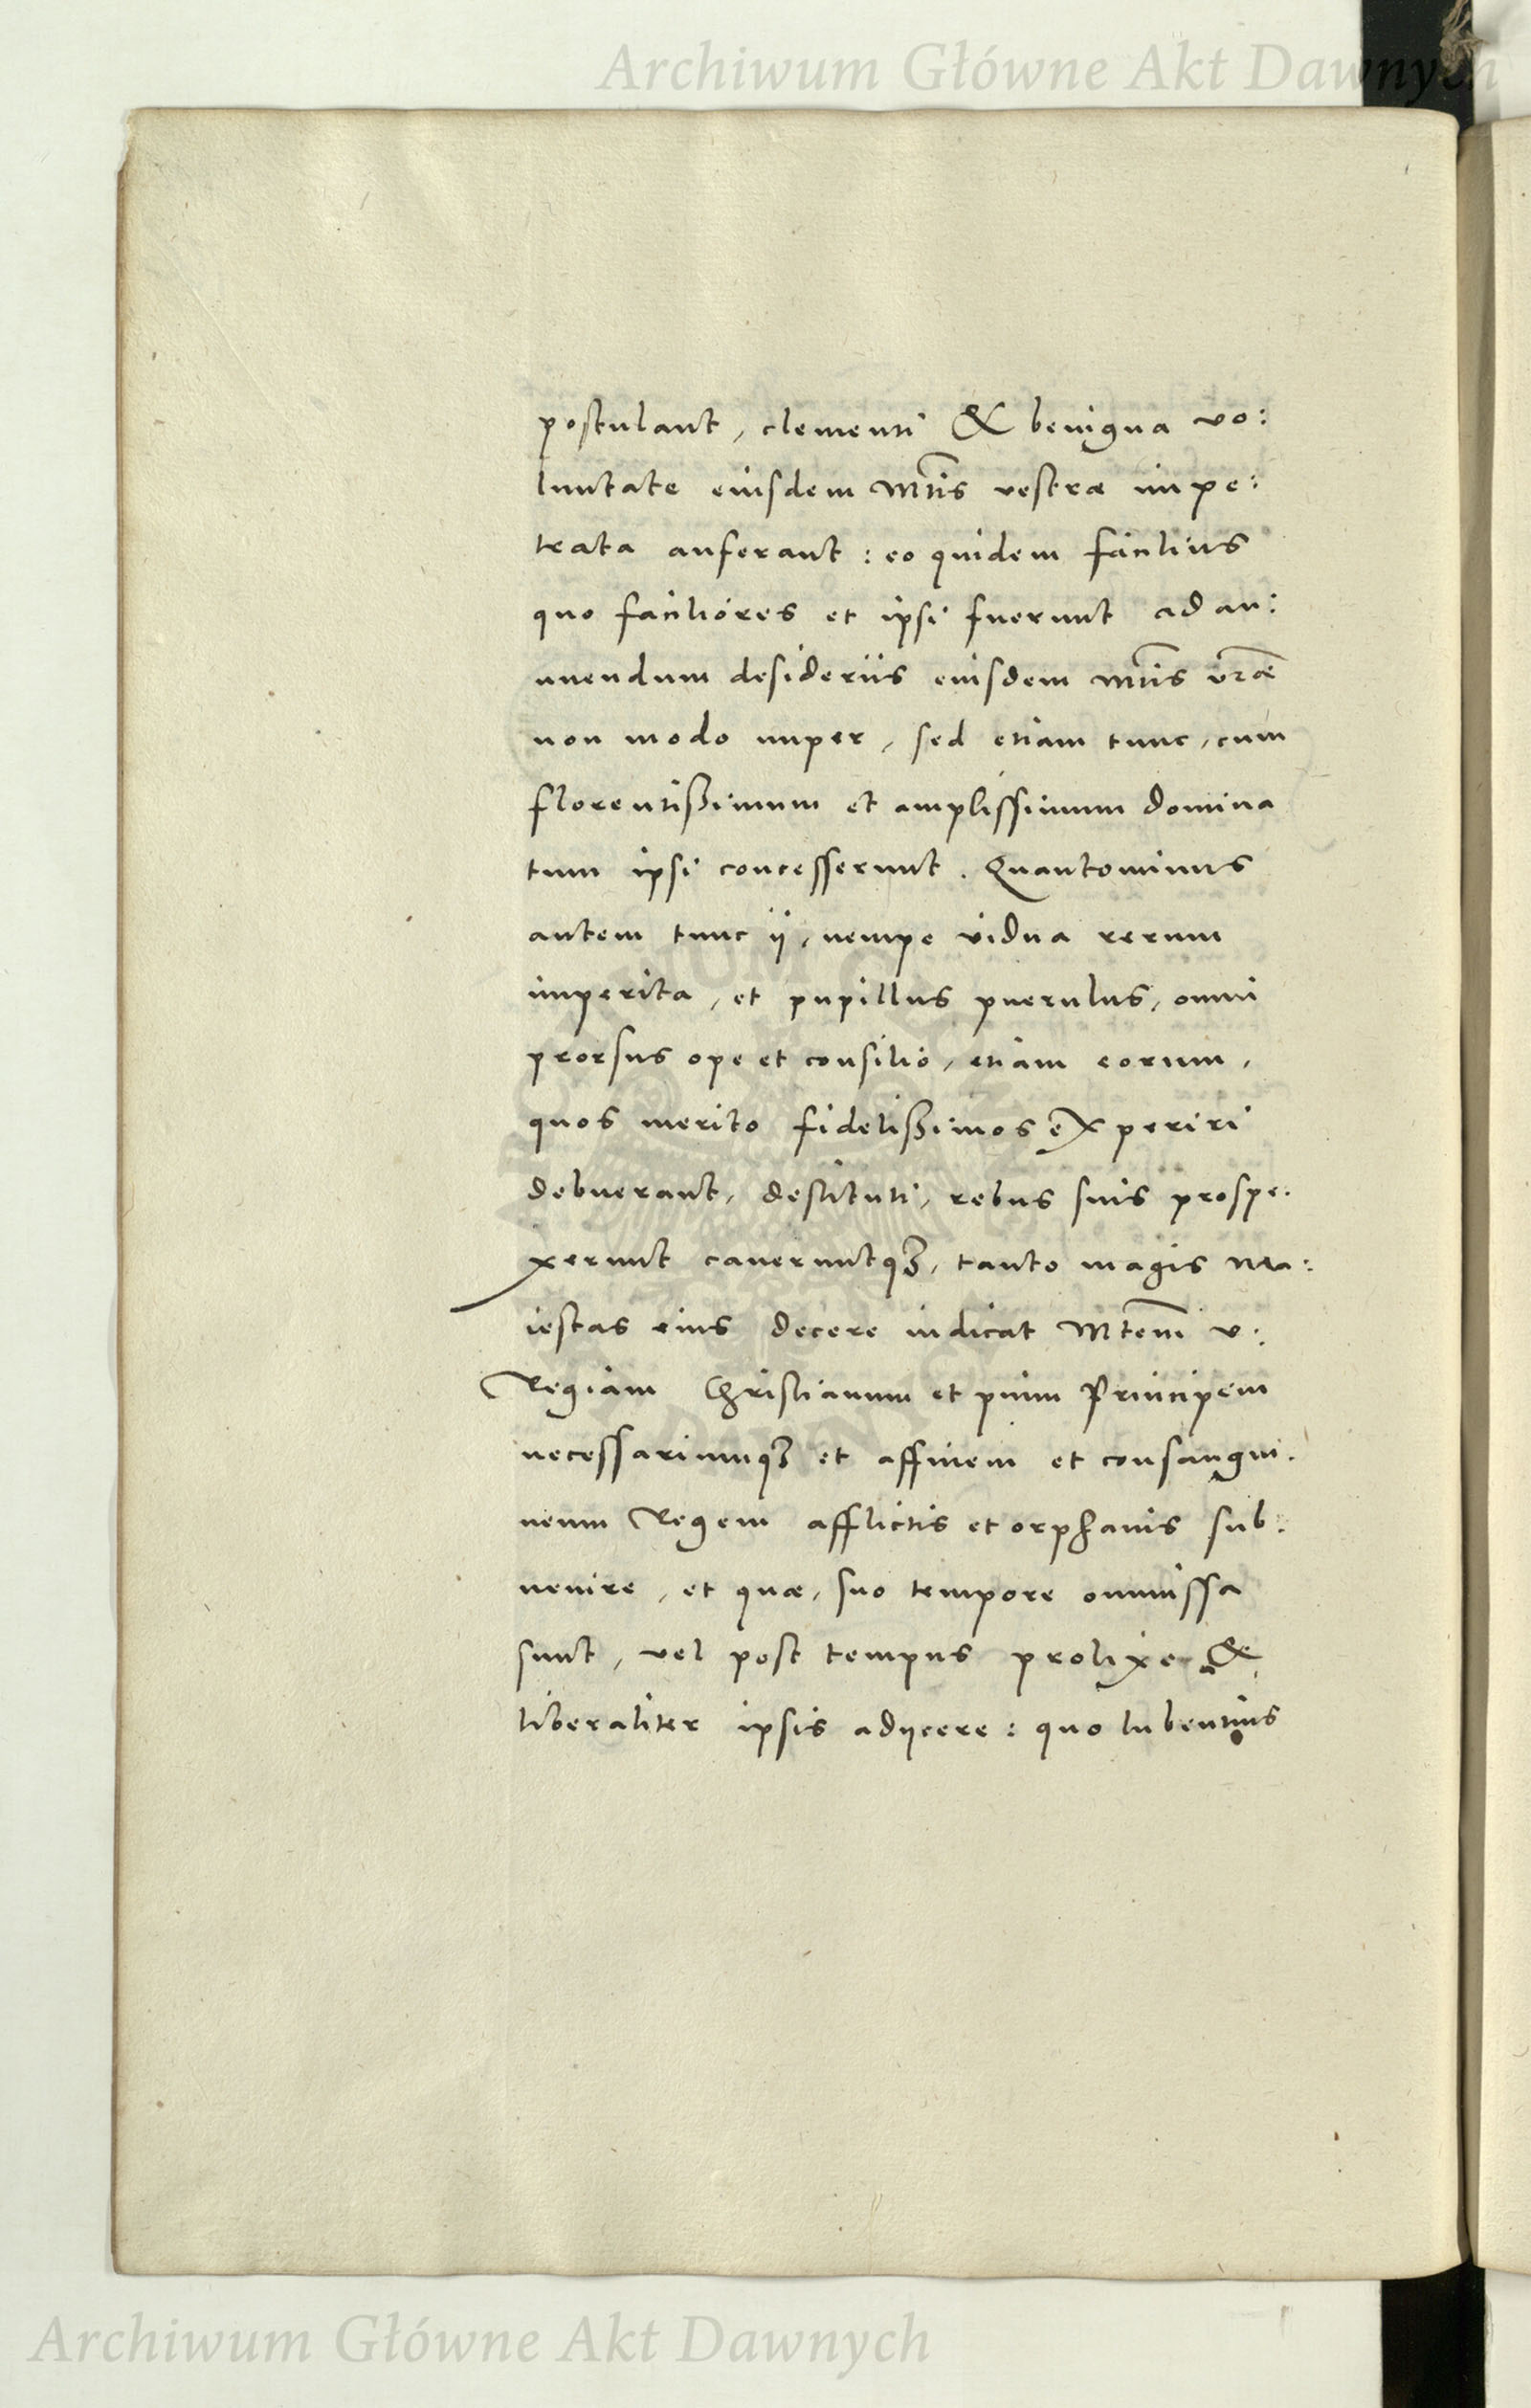 Archiwum Główne Akt Dawnych
postulant, clementi & benigna vo:
luntate eiusdem Mtis vestræ impe:
trata auferant: eo quidem facilius
quo faciliores et ipsi fuerunt ad an:
nuendum desideriis eiusdem Mtis vræ
non modo nuper, sed etiam tunc, cum
florentißimum et amplissimum domina
tum ipsi concesserunt. Quantominus
autem tunc ij, nempe vidua rerum
imperita, et pupillus puerulus, omni
prorsus ope et consilio, etiam eorum,
quos merito fidelißimos experiri
debuerant, destituti, rebus suis prospe:
xerunt caueruntq3, tanto magis Ma:
iestas eius decere iudicat Mtem v:
Regiam Christianum et pium Principem
necessariumq3 et affinem et consangui:
neum Regem afflictis et orphanis sub:
uenire, et quæ, suo tempore ommissa
sunt, vel post tempus prolixe &
liberaliter ipsis adijcere: quo lubentius
Archiwum Główne Akt Dawnych